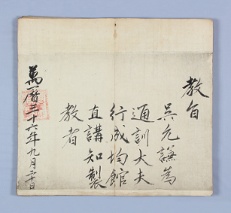 教旨
吳允謙爲
通訓大夫
行成均館
直講知製
敎者
萬曆三十六年九月三日